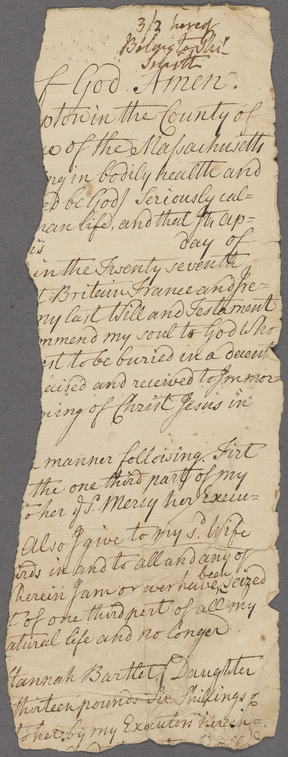 3/3 hereof
Belong to Phi<sup>l</sup>
Smith
f God Amen.
ton in the County of
e of the Massachusetts
ng in bodily health and
ed be God) Seriously cal=
man life, and that its ap=
is day of
in the Twenty seventh
t Britain France and Ire=
my last Will and Testament
mmend my soul to God who
est to be buried in a decent
raised and received to Immor=
ming of Christ Jesus in
e manner following. First
the one third part of my
to her y<sup>e</sup> s<sup>d</sup>. Mercy her Execu=
Also I give to my s<sup>d</sup>. Wife
irds in and to all and any of
herein I am or ever have been Seized
t of one third part of all my
atural life and no longer
Hannah Bartlet, Daughter
thirteen pounds Six Shillings &
to her by my Executrix herein=